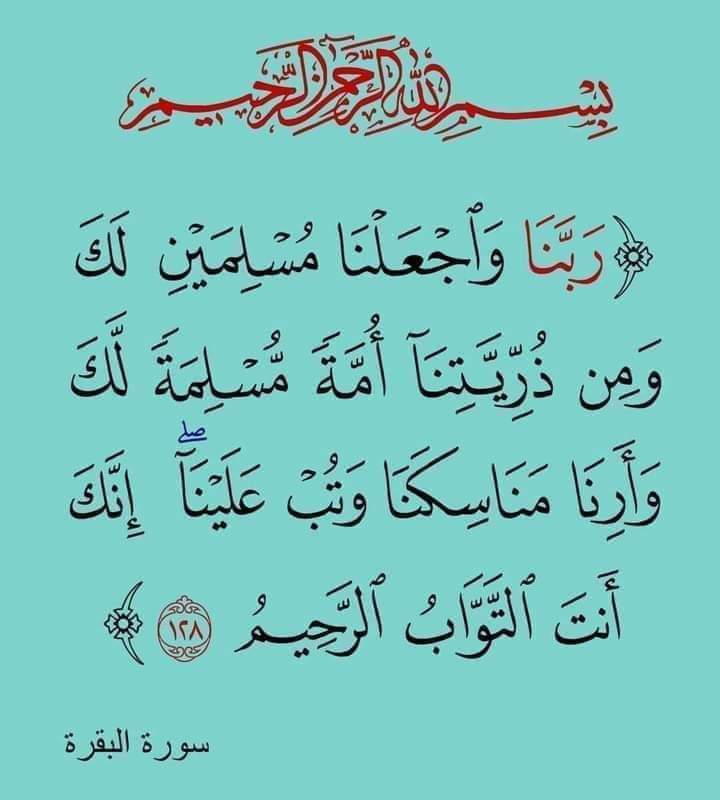 بِسْمِ اللَّهِ الرَّحْمَنِ الرَّحِيمِ
﴿رَبَّنَا وَٱجْعَلْنَا مُسْلِمَيْنِ لَكَ
وَمِن ذُرِّيَّتِنَآ أُمَّةً مُّسْلِمَةً لَّكَ
وَأَرِنَا مَنَاسِكَنَا وَتُبْ عَلَيْنَآ ۖ إِنَّكَ
أَنتَ ٱلتَّوَّابُ ٱلرَّحِيمُ ١٢٨﴾
سورة البقرة